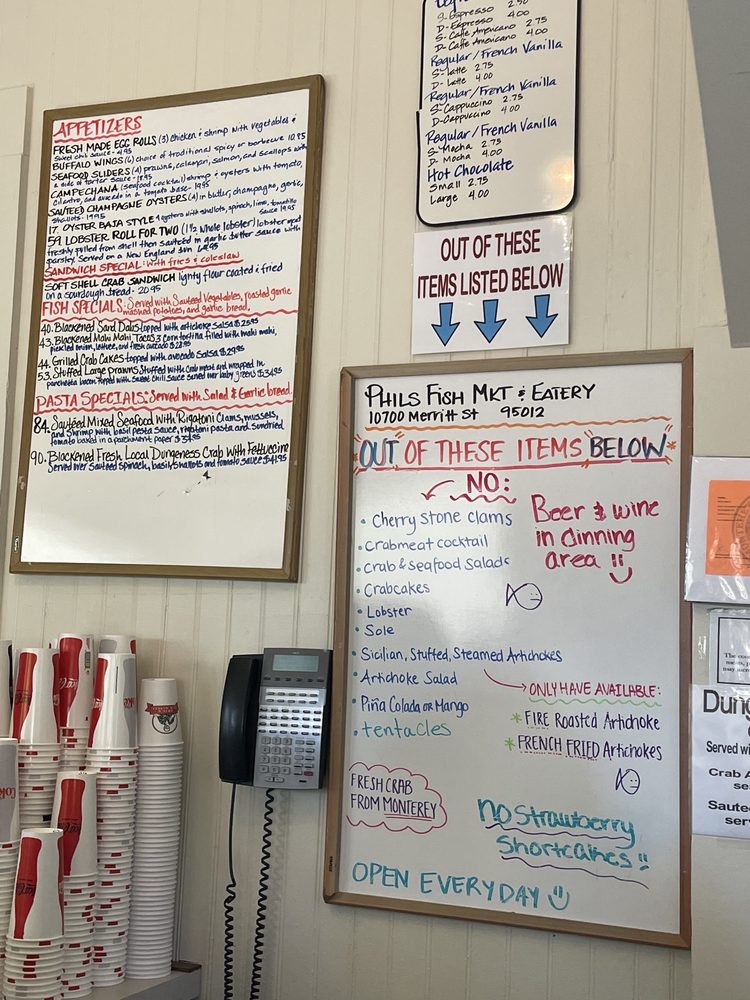 APPETIZERS
FRESH MADE EGG ROLLS (3) chicken & shrimp with vegetables &
sweet chili sauce - 4.95
BUFFALO WINGS (6) choice of traditional spicy or barbecue 10.95
SEAFOOD SLIDERS (4) prawns, calamari, salmon, and scallops with
a side of tarter sauce - 18.95
CAMPECHANA (seafood cocktail) shrimp & oysters with tomato,
cilantro, and avocado in a tomato base - 19.95
SAUTEED CHAMPAGNE OYSTERS (4) in butter, champagne, garlic,
shallots - 19.95
17. OYSTER BAJA STYLE 4 oysters with shallots, spinach, lime, tomatillo
sauce 19.95
59. LOBSTER ROLL FOR TWO (1½ whole lobster) lobster meat
freshly pulled from shell then sautéed in garlic butter sauce with
parsley. Served on a New England
SANDWICH SPECIAL: with fries & coleslaw
SOFT SHELL CRAB SANDWICH lightly flour coated & fried
on a sourdough bread - 20.95
FISH SPECIALS: Served with Sauteed Vegetables, roasted garlic
mashed potatoes, and garlic bread.
40. Blackened Sand Dabs topped with artichoke salsa $25.95
43. Blackened Mahi Mahi Tacos 3 corn tortilla filled with mahi mahi,
pickled onion, lettuce, and fresh avocado $22.95
44. Grilled Crab Cakes topped with avocado salsa $29.95
53. Stuffed Large prawns Stuffed with crab meat and wrapped in
pancheta bacon topped with sweet chili sauce served over baby greens $34.95
PASTA SPECIALS: Served with Salad & Garlic bread.
84. Sautéed Mixed Seafood with Rigatoni Clams, mussels,
and Shrimp with basil pesto sauce, rigatoni pasta and sundried
tomato baked in a parchment paper $34.95
90. Blackened Fresh Local Dungeness Crab with Fettuccine
Served over sautéed spinach, basil, shallots and tomato sauce $41.95
S- Espresso 2.50
D- Espresso 4.00
S- Caffe Americano 2.75
D- Caffe Americano 4.00
Regular/French Vanilla
S- Latte 2.75
D- Latte 4.00
Regular/French Vanilla
S- Cappuccino 2.75
D- Cappuccino 4.00
Regular/French Vanilla
S- Mocha 2.75
D- Mocha 4.00
Hot Chocolate
Small 2.75
Large 4.00
OUT OF THESE
ITEMS LISTED BELOW
PHILS FISH MKT & EATERY
10700 Merritt St 95012
OUT OF THESE ITEMS BELOW
NO:
Cherry stone clams
Crabmeat cocktail
Crab & seafood salads
Crabcakes
Lobster
Sole
Sicilian, Stuffed, Steamed Artichokes
Artichoke Salad
Piña Colada or Mango
tentacles
Beer & wine
in dinning
area
ONLY HAVE AVAILABLE:
* FIRE Roasted Artichoke
* FRENCH FRIED Artichokes
FRESH CRAB
FROM MONTEREY
NO Strawberry
Shortcakes !!
OPEN EVERYDAY
Dung
Served wi
Crab A
se
Saute
serv